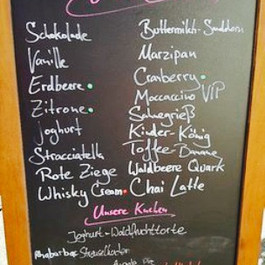 Schokolade
Vanille
Erdbeere
Zitrone
Joghurt
Stracciatella
Rote Ziege
Whisky Cream
Buttermilch-Sanddorn
Marzipan
Cranberry
Moccaccino VIP
Sahnegrieß
Kinder-König
Toffee-Banane
Waldbeere Quark
Chai Latte
Unsere Kuchen
Joghurt-Waldfruchttorte
Rhabarber Streuselkuchen